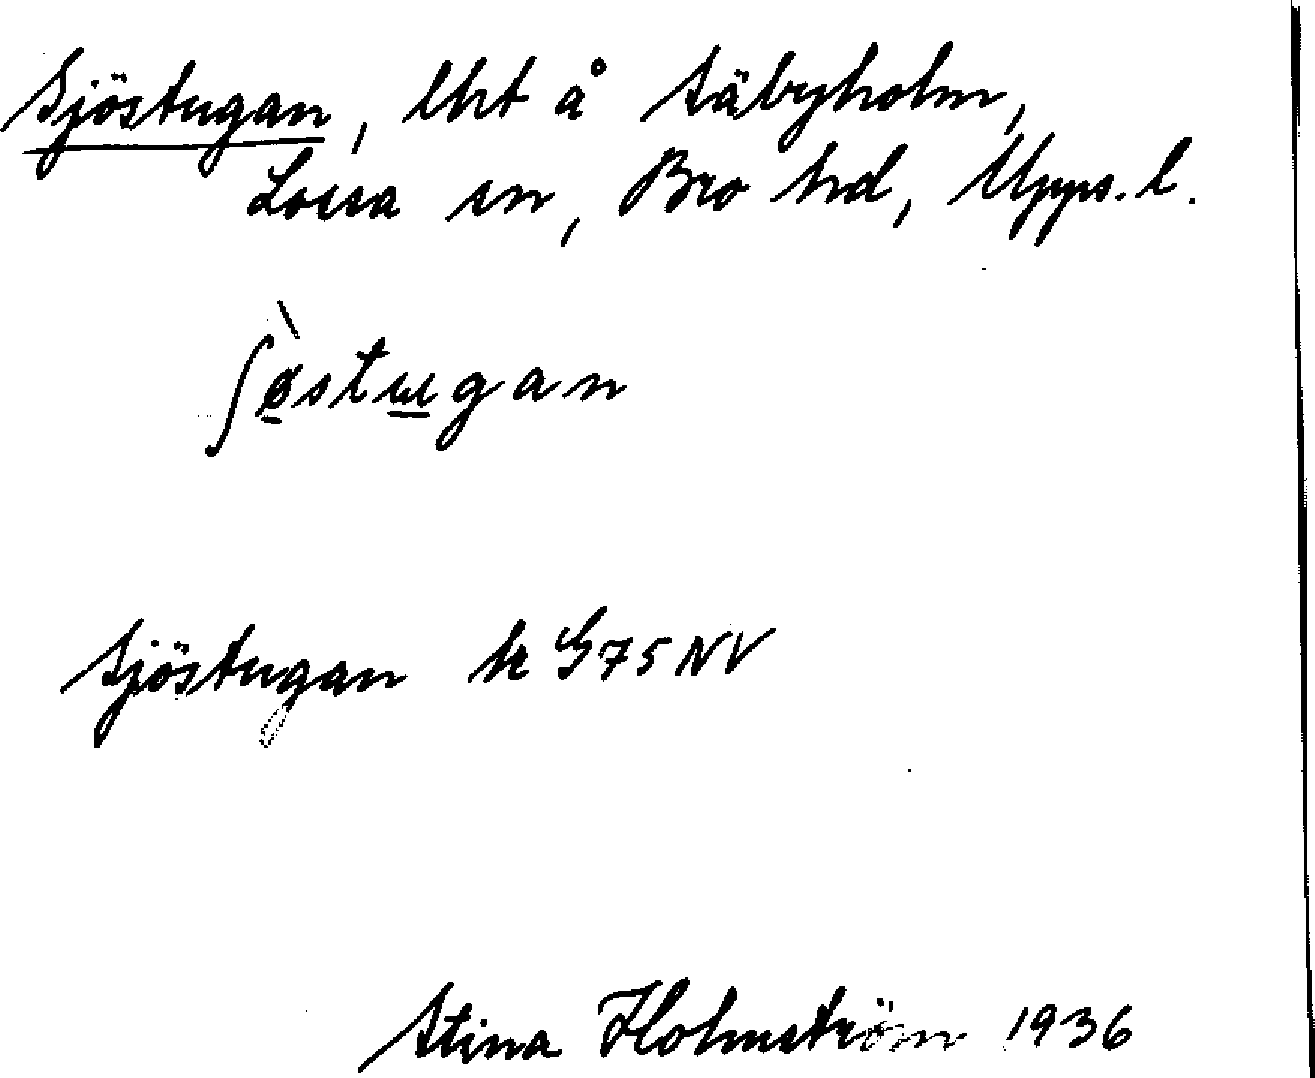 Sjöstugan, lht å Säbyholm,
Lossa sn, Bro hd, Upps. l.
ʃø̀stugan
Sjöstugan k G75NV
Stina Holmström 1936